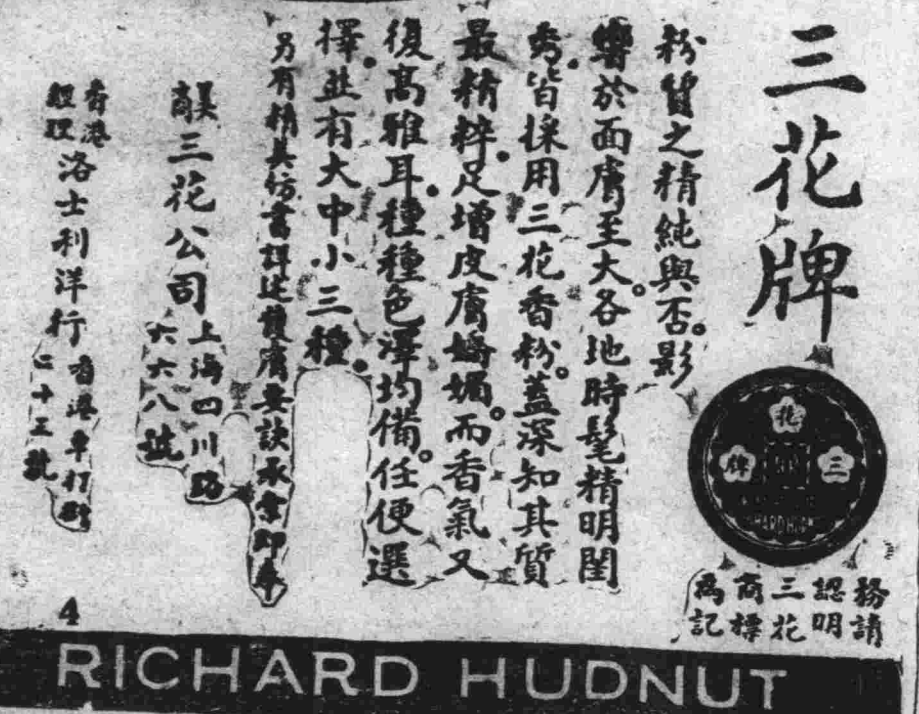 三花牌
花
牌 三
務請
認明
三花
商標
為記
粉質之精純與否。影
響於面膚至大。各地時髦精明閨
秀。皆採用三花香粉。蓋深知其質
最精粹。足增皮膚嬌媚。而香氣又
復高雅耳。種種色澤均備。任便選
擇。並有大中小三種。
另有精美仿書詳述護膚要訣承索即奉
美商三花公司 上海四川路
六六八號
香港
經理 洛士利洋行 香港車打街
二十三號
4
RICHARD HUDNUT